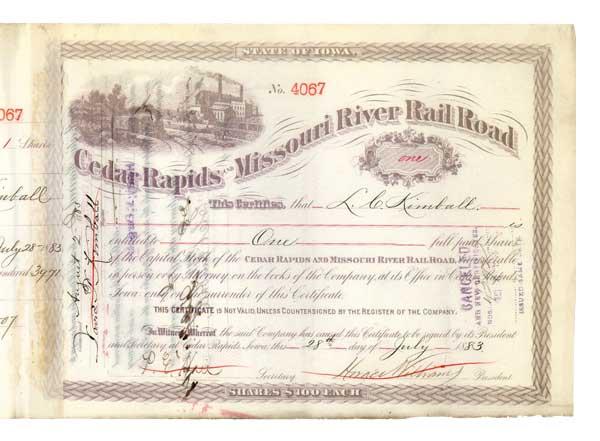 STATE OF IOWA.
No. 4067
4067
Cedar Rapids AND Missouri River Rail Road
one
1 Shares
This Certifies, that L. C. Kimball is
entitled to One full paid Shares
of the Capital Stock of the CEDAR RAPIDS AND MISSOURI RIVER RAIL ROAD, transferable
in person or by Attorney on the books of the Company, at its Office in Cedar Rapids
Iowa only on surrender of this Certificate.
THIS CERTIFICATE IS NOT VALID, UNLESS COUNTERSIGNED BY THE REGISTER OF THE COMPANY.
In Witness Whereof the said Company has caused this Certificate to be signed by its President
and Secretary at Cedar Rapids, Iowa, this 28th day of July 1883
Secretary Horace Williams President
SHARES $100 EACH
Kimball
July 28 1883
3971
07
August 2
Kimball
CANCELLED
AND NEW CERTIFICATES
NOS.
ISSUED SAME DATE